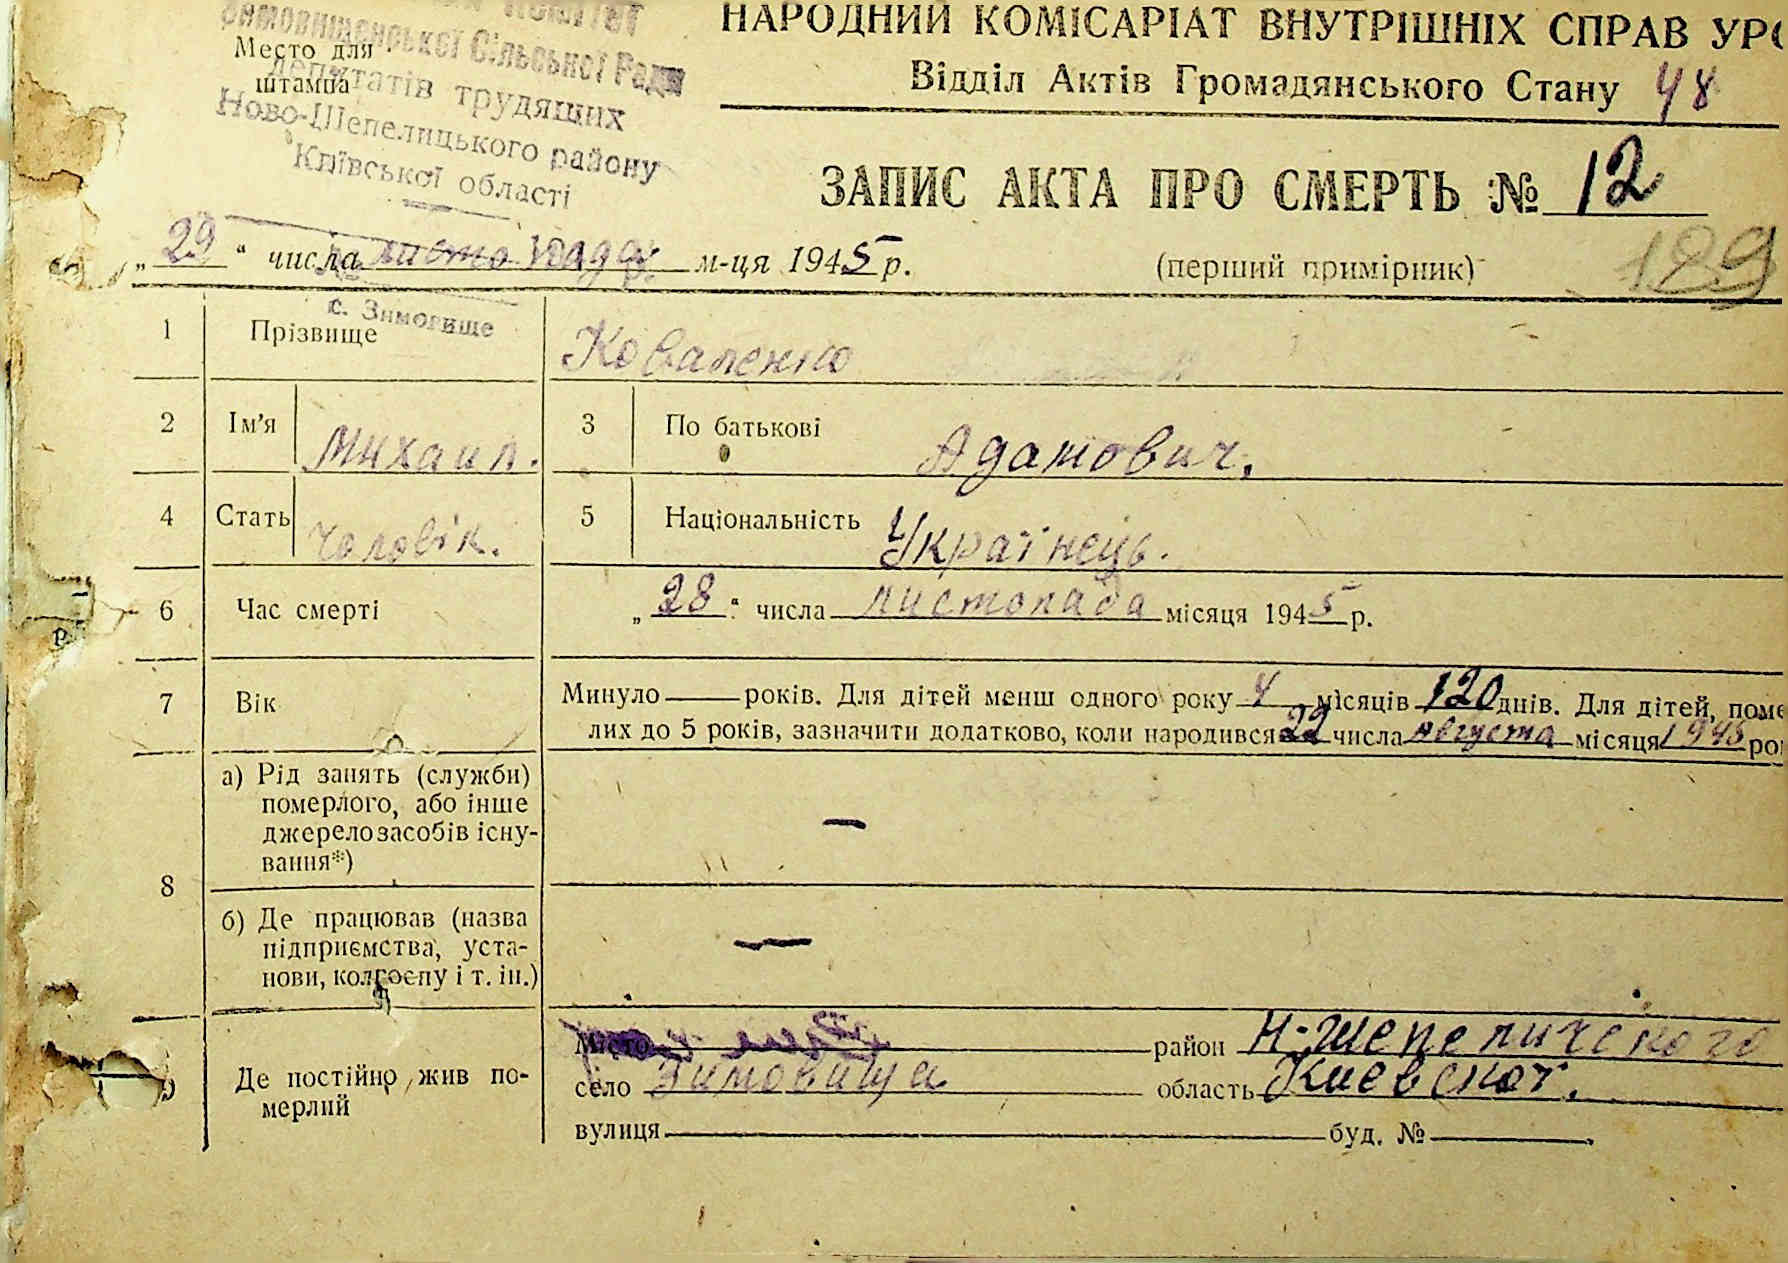 Зимовищенської Сільської Ради
Место для
штампа
депутатів трудящих
Ново-Шепелицького району
Київської області
с. Зимовище
НАРОДНИЙ КОМІСАРІАТ ВНУТРІШНІХ СПРАВ УРС
Відділ Актів Громадянського Стану 48
ЗАПИС АКТА ПРО СМЕРТЬ № 12
„29“ числа листопаду м-ця 1945 р. (перший примірник) 129
1 Прізвище Коваленко
2 Ім'я Михаил. 3 По батькові Адамович.
4 Стать Чоловік. 5 Національність Українець.
6 Час смерті „28“ числа листопада місяця 1945 р.
7 Вік Минуло — років. Для дітей менш одного року 4 місяців 120 днів. Для дітей, поме
лих до 5 років, зазначити додатково, коли народився 22 числа августа місяця 1945 ро
8 а) Рід занять (служби)
померлого, або інше
джерело засобів існу-
вання*) —
б) Де працював (назва
підприємства, уста-
нови, колгоспу і т. ін.) —
9 Де постійно жив по-
мерлий
Місто район Н-Шепеличского
село Зимовища область Киевской.
вулиця буд. №